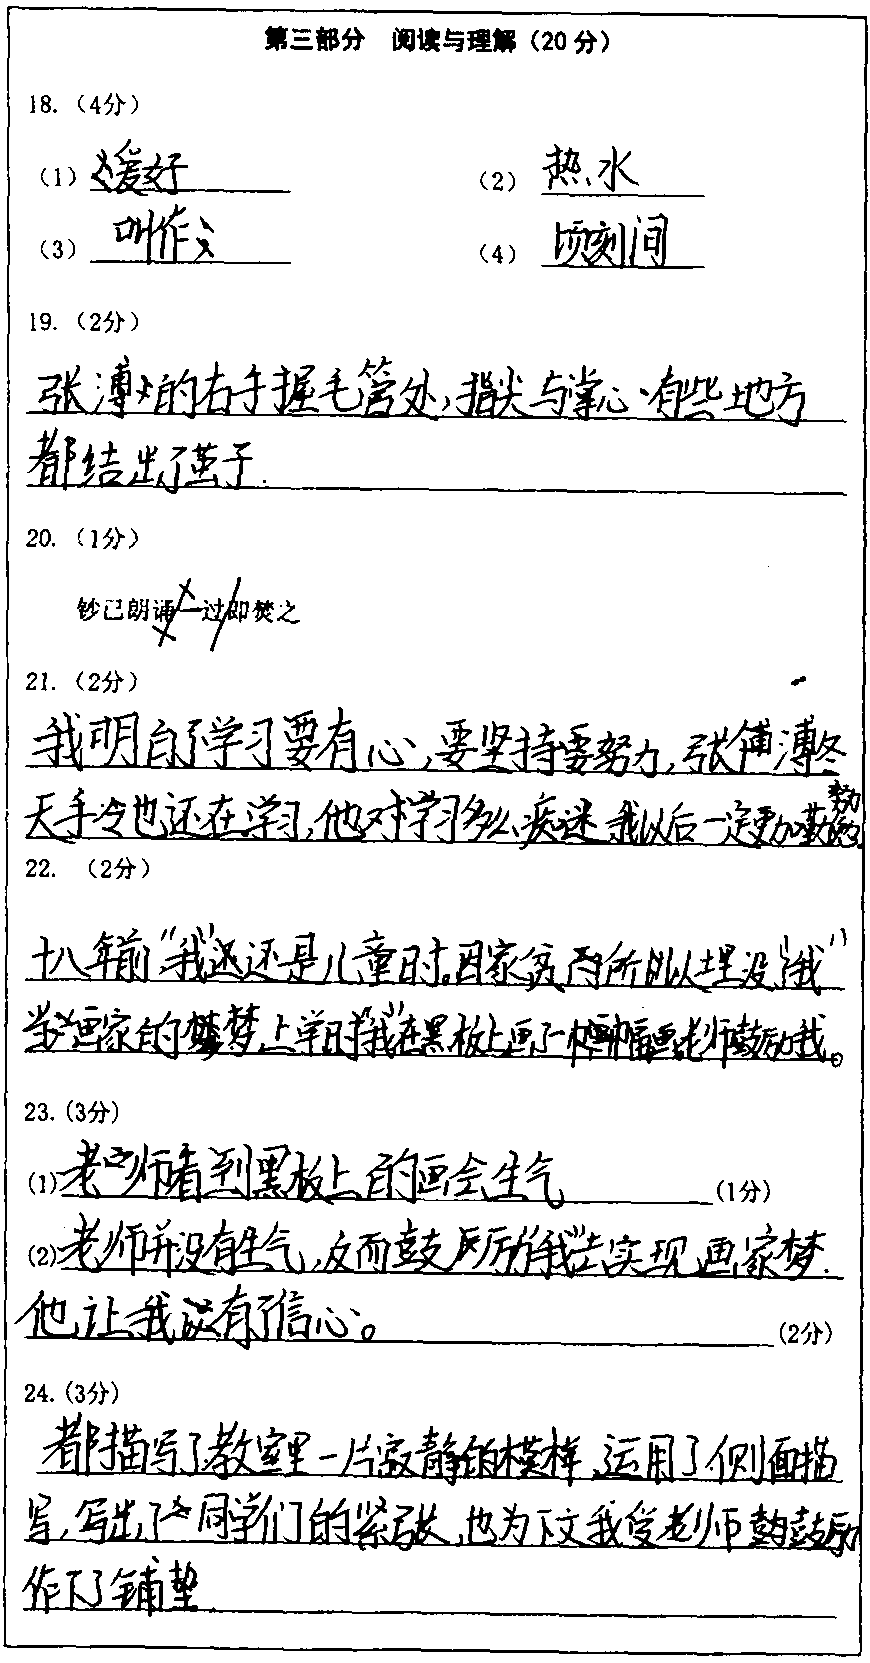 第三部分 阅读与理解（20分）
18.（4分）
（1）爱好 （2）热水
（3）叫作 （4）顷刻间
19.（2分）
张溥的右手握毛管处,指尖与掌心有些地方
都结出了茧子.
20.（1分）
钞已朗诵一过即焚之
21.（2分）
我明白了学习要有心,要坚持要努力,张溥冬
天手冷也还在学习,他对学习多么痴迷 我以后一定更加勤
22. （2分）
十八年前,“我”还是儿童时。因家贫而所以埋没了“我”
当画家的梦 上学时“我”在黑板上画了一幅画老师鼓励我。
23.(3分)
(1)老师看到黑板上的画会生气(1分)
(2)老师并没有生气,反而鼓励“我”去实现画家梦.
他让我有了信心。(2分)
24.(3分)
都描写了教室里一片寂静的模样,运用了侧面描
写,写出了同学们的紧张,也为下文我受老师鼓励
作下了铺垫.